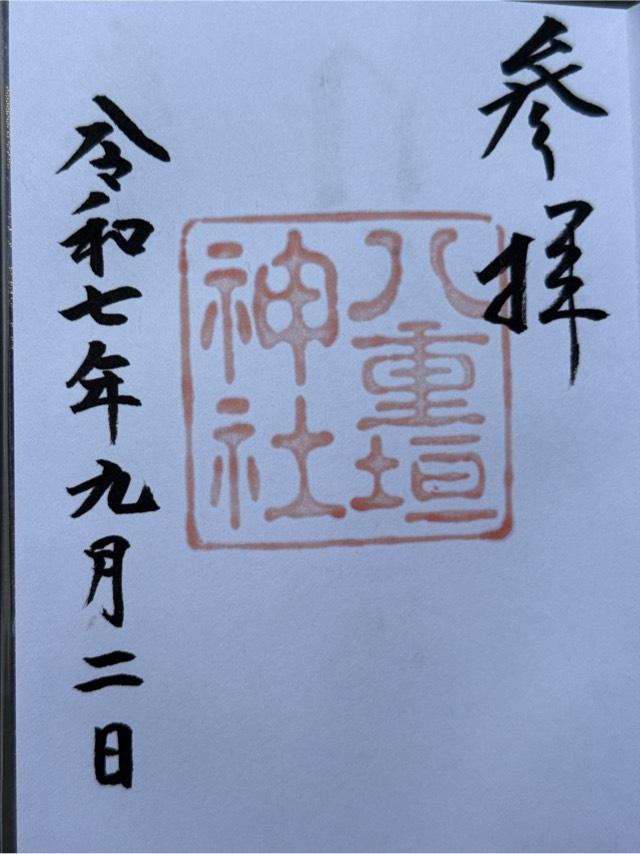 參拝
八重垣
神社
令和七年九月二日